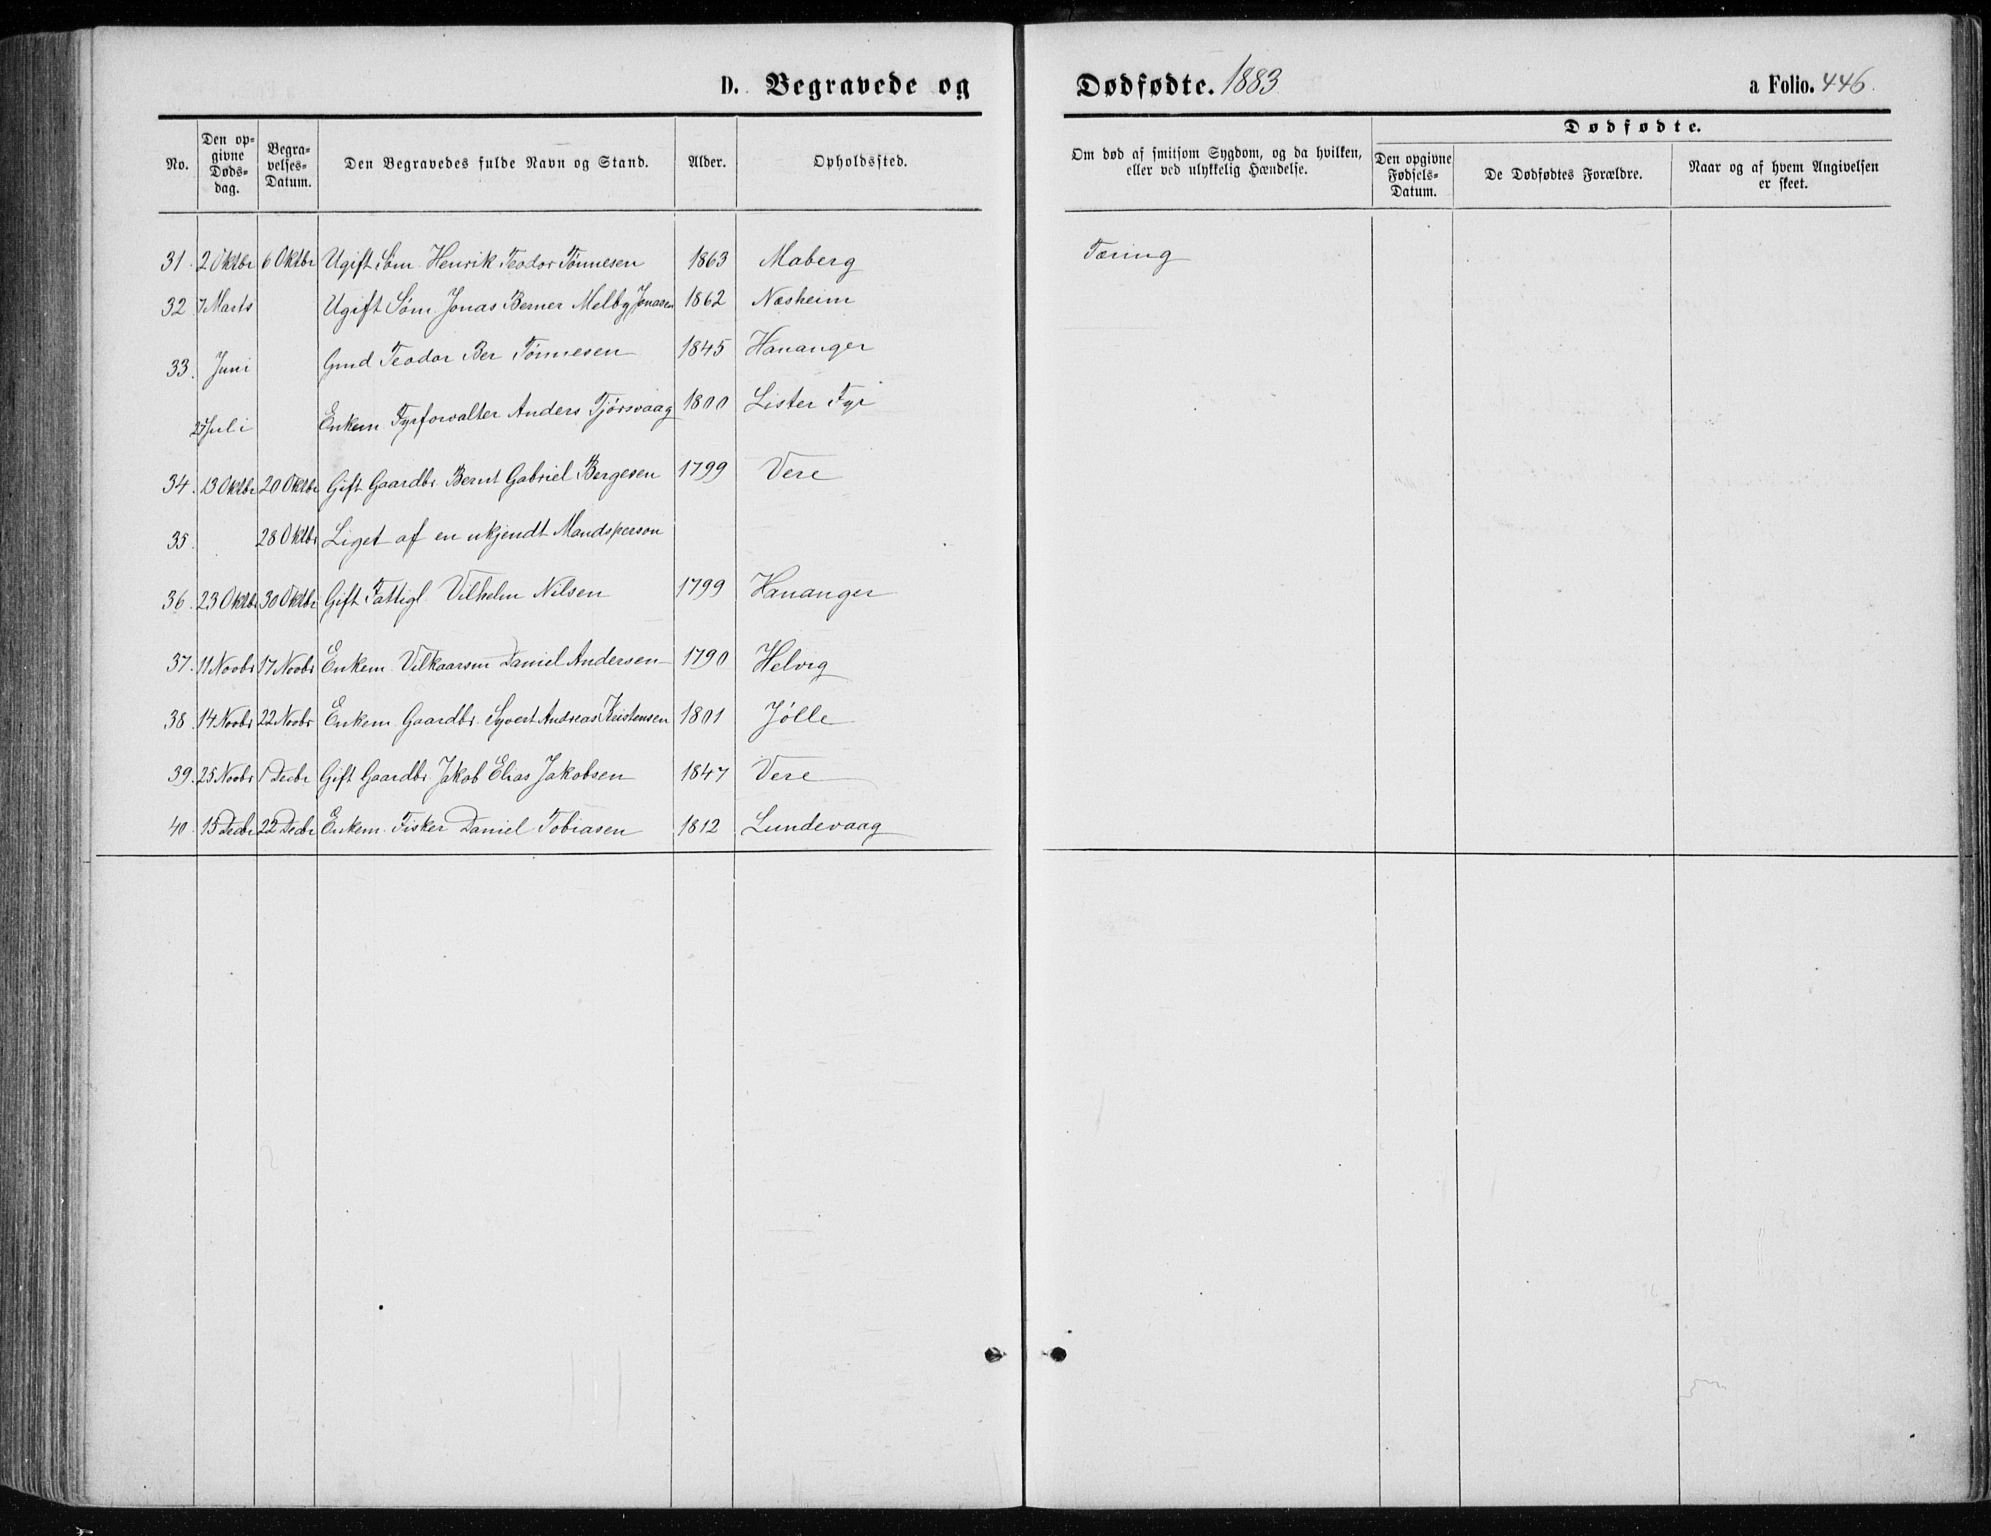 D. Begravede og Dødfødte. 1883 a Folio. 446.
No. | Den opgivne Dødsdag. | Begravelses-Datum. | Den Begravedes fulde Navn og Stand. | Alder. | Opholdssted. | Om død af smitsom Sygdom, og da hvilken, eller ved ulykkelig Hændelse. | Dødfødte. | Den opgivne Fødsels-Datum. | De Dødfødtes Forældre. | Naar og af hvem Angivelsen er skeet.
31. 2 Oktbr 6 Oktbr Ugift Søm. Henrik Teodor Tønnesen 1863 Maberg Tæring
32 7 Marts Ugift Søm. Jonas Berner Melby Jonasen 1862 Næsheim
33. Juni Gmd Teodor Ber Tønnesen 1845 Hananger
27 Juli Enkem Fyrforvalter Anders Tjørsvaag 1800 Lister Fyr
34. 13 Oktbr 20 Oktbr Gift Gaardbr Bernt Gabriel Børgesen 1799 Vere
35. 28 Oktbr Liget af en ukjendt Mandsperson
36. 23 Oktbr 30 Oktbr Gift Fattigl. Vilhelm Nilsen 1799 Hananger
37. 11 Novbr 17 Novbr Enkem. Vilkaarsm Daniel Andersen 1790 Helvig
38. 14 Novbr 22 Novbr Enkem. Gaardbr. Syvert Andreas Kristensen 1801 Jølle
39. 25 Novbr 1 Decbr Gift Gaardbr Jakob Elias Jakobsen 1847 Vere
40. 15 Decbr 22 Decbr Enkem. Fisker Daniel Tobiasen 1812 Lundevaag